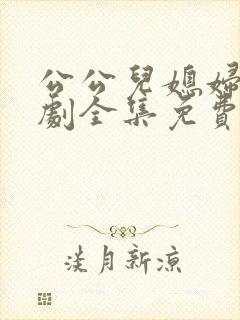 公公兒媳婦
劇全集免費
淡月新涼